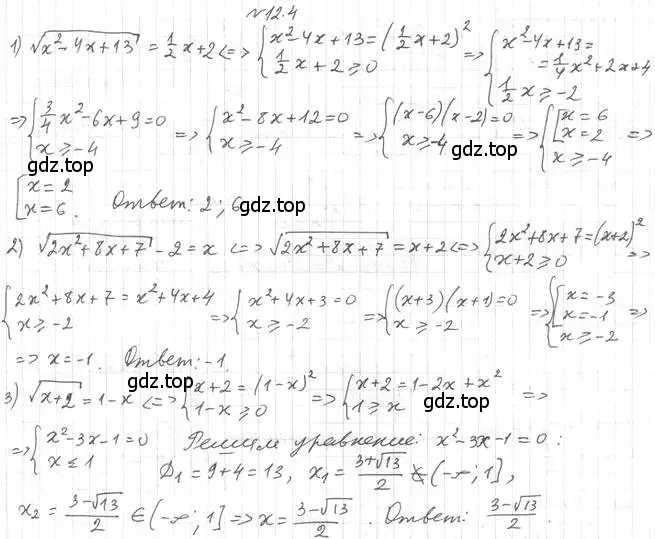 №12.4
1) √(x²-4x+13) = ½x+2 <=> { x²-4x+13=(½x+2)² ; ½x+2⩾0 => { x²-4x+13= =¼x²+2x+4 ; ½x⩾-2
=> { ¾x²-6x+9=0 ; x⩾-4 => { x²-8x+12=0 ; x⩾-4 => { (x-6)(x-2)=0 ; x⩾-4 => { [ x=6 ; x=2 ; x⩾-4 =>
gdz.top gdz.top
[ x=2 ; x=6 . Ответ: 2; 6
gdz.top
2) √(2x²+8x+7) -2=x <=> √(2x²+8x+7) =x+2 <=> { 2x²+8x+7=(x+2)² ; x+2⩾0 =>
{ 2x²+8x+7=x²+4x+4 ; x⩾-2 => { x²+4x+3=0 ; x⩾-2 => { (x+3)(x+1)=0 ; x⩾-2 => { [ x=-3 ; x=-1 ; x⩾-2 =>
=> x=-1. Ответ: -1.
gdz.top
3) √(x+2) =1-x <=> { x+2=(1-x)² ; 1-x⩾0 => { x+2=1-2x+x² ; 1⩾x =>
gdz.top gdz.top
=> { x²-3x-1=0 ; x⩽1 Решим уравнение: x²-3x-1=0:
Д₁=9+4=13, x₁= (3+√13)/2 ∉ (-∞; 1],
x₂= (3-√13)/2 ∈ (-∞; 1] => x= (3-√13)/2 . Ответ: (3-√13)/2 .
gdz.top